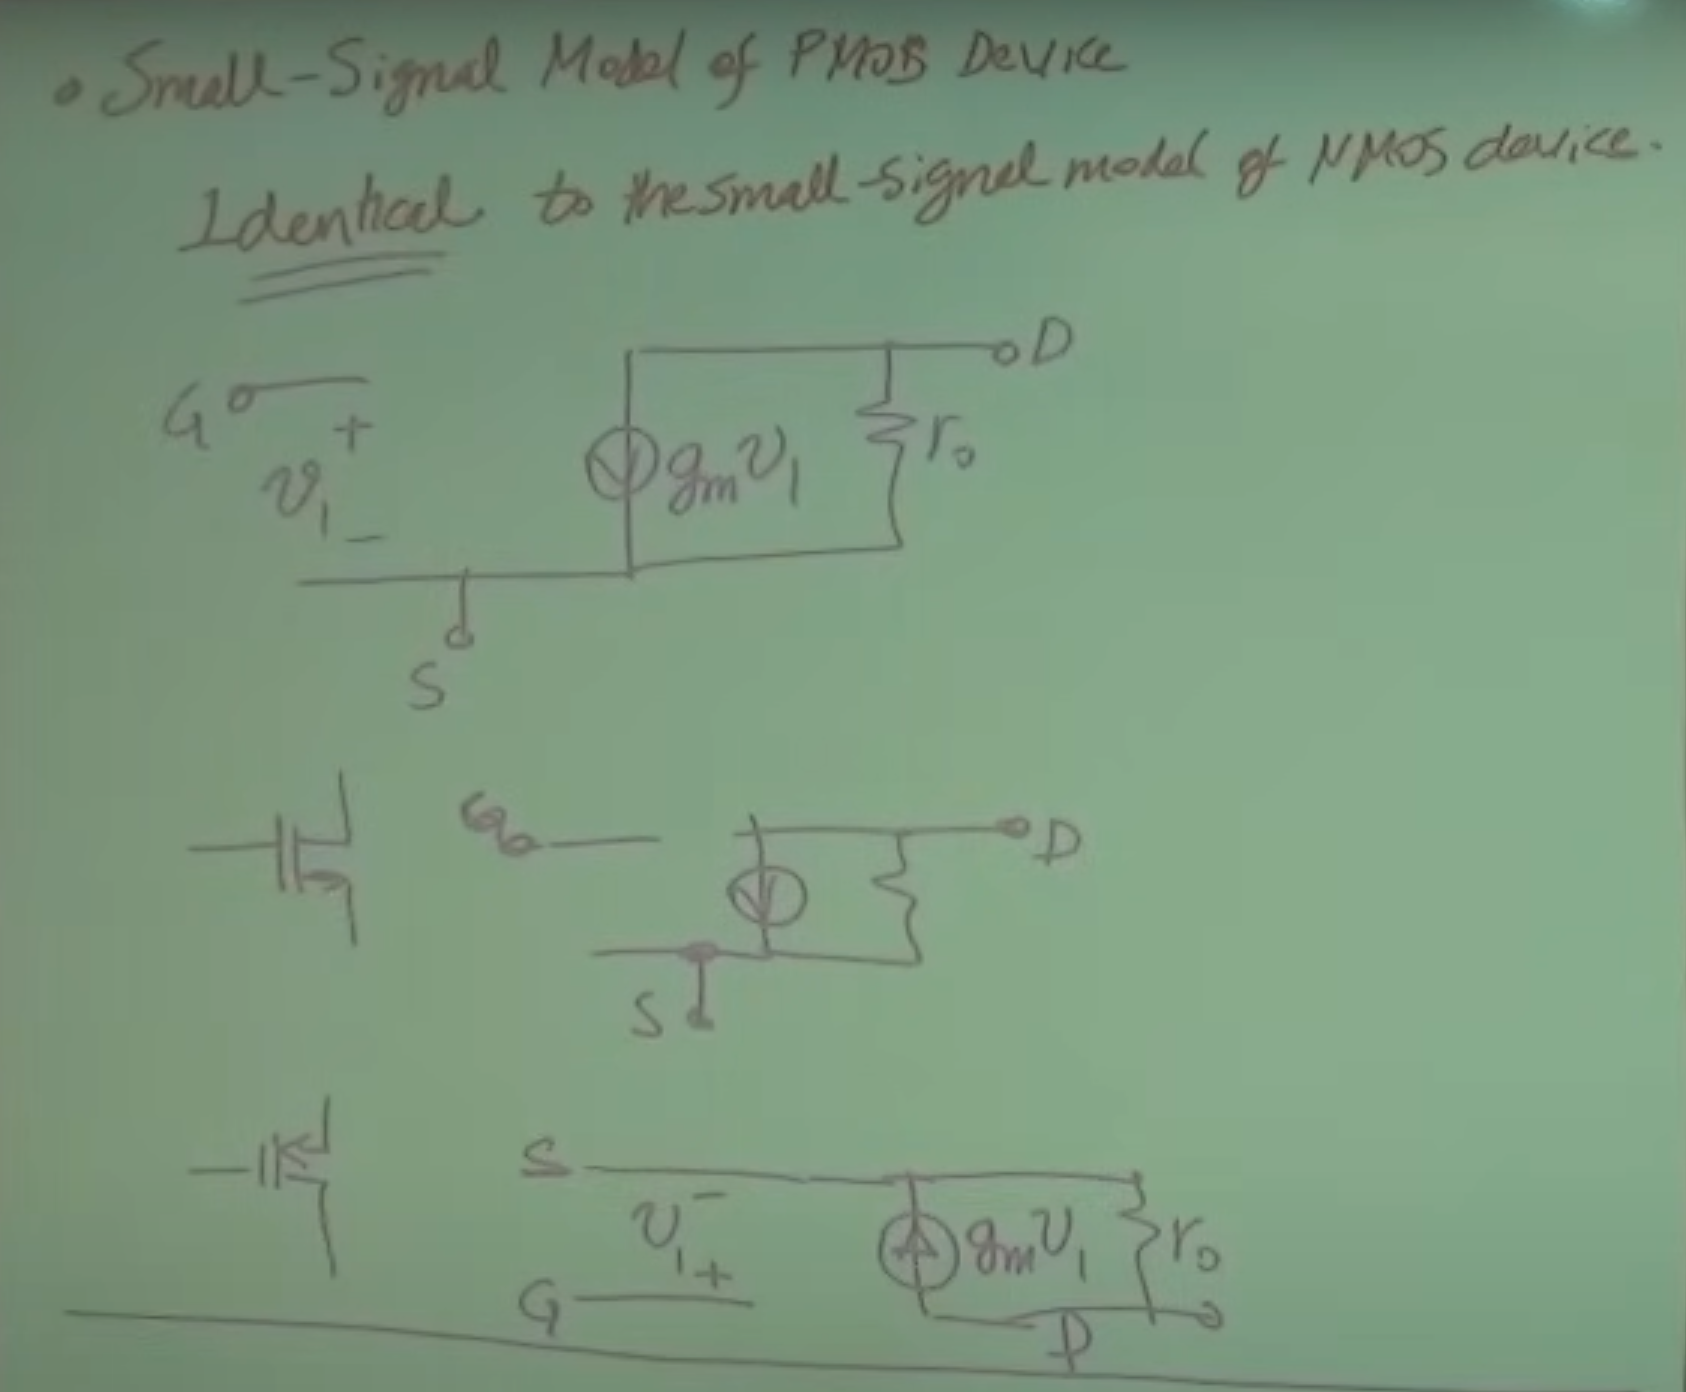 • Small-Signal Model of PMOS Device
Identical to the small-signal model of NMOS device.
D
G
+
v₁
-
gₘv₁
r₀
S
G
D
S
S
v₁
-
+
gₘv₁
r₀
G
D